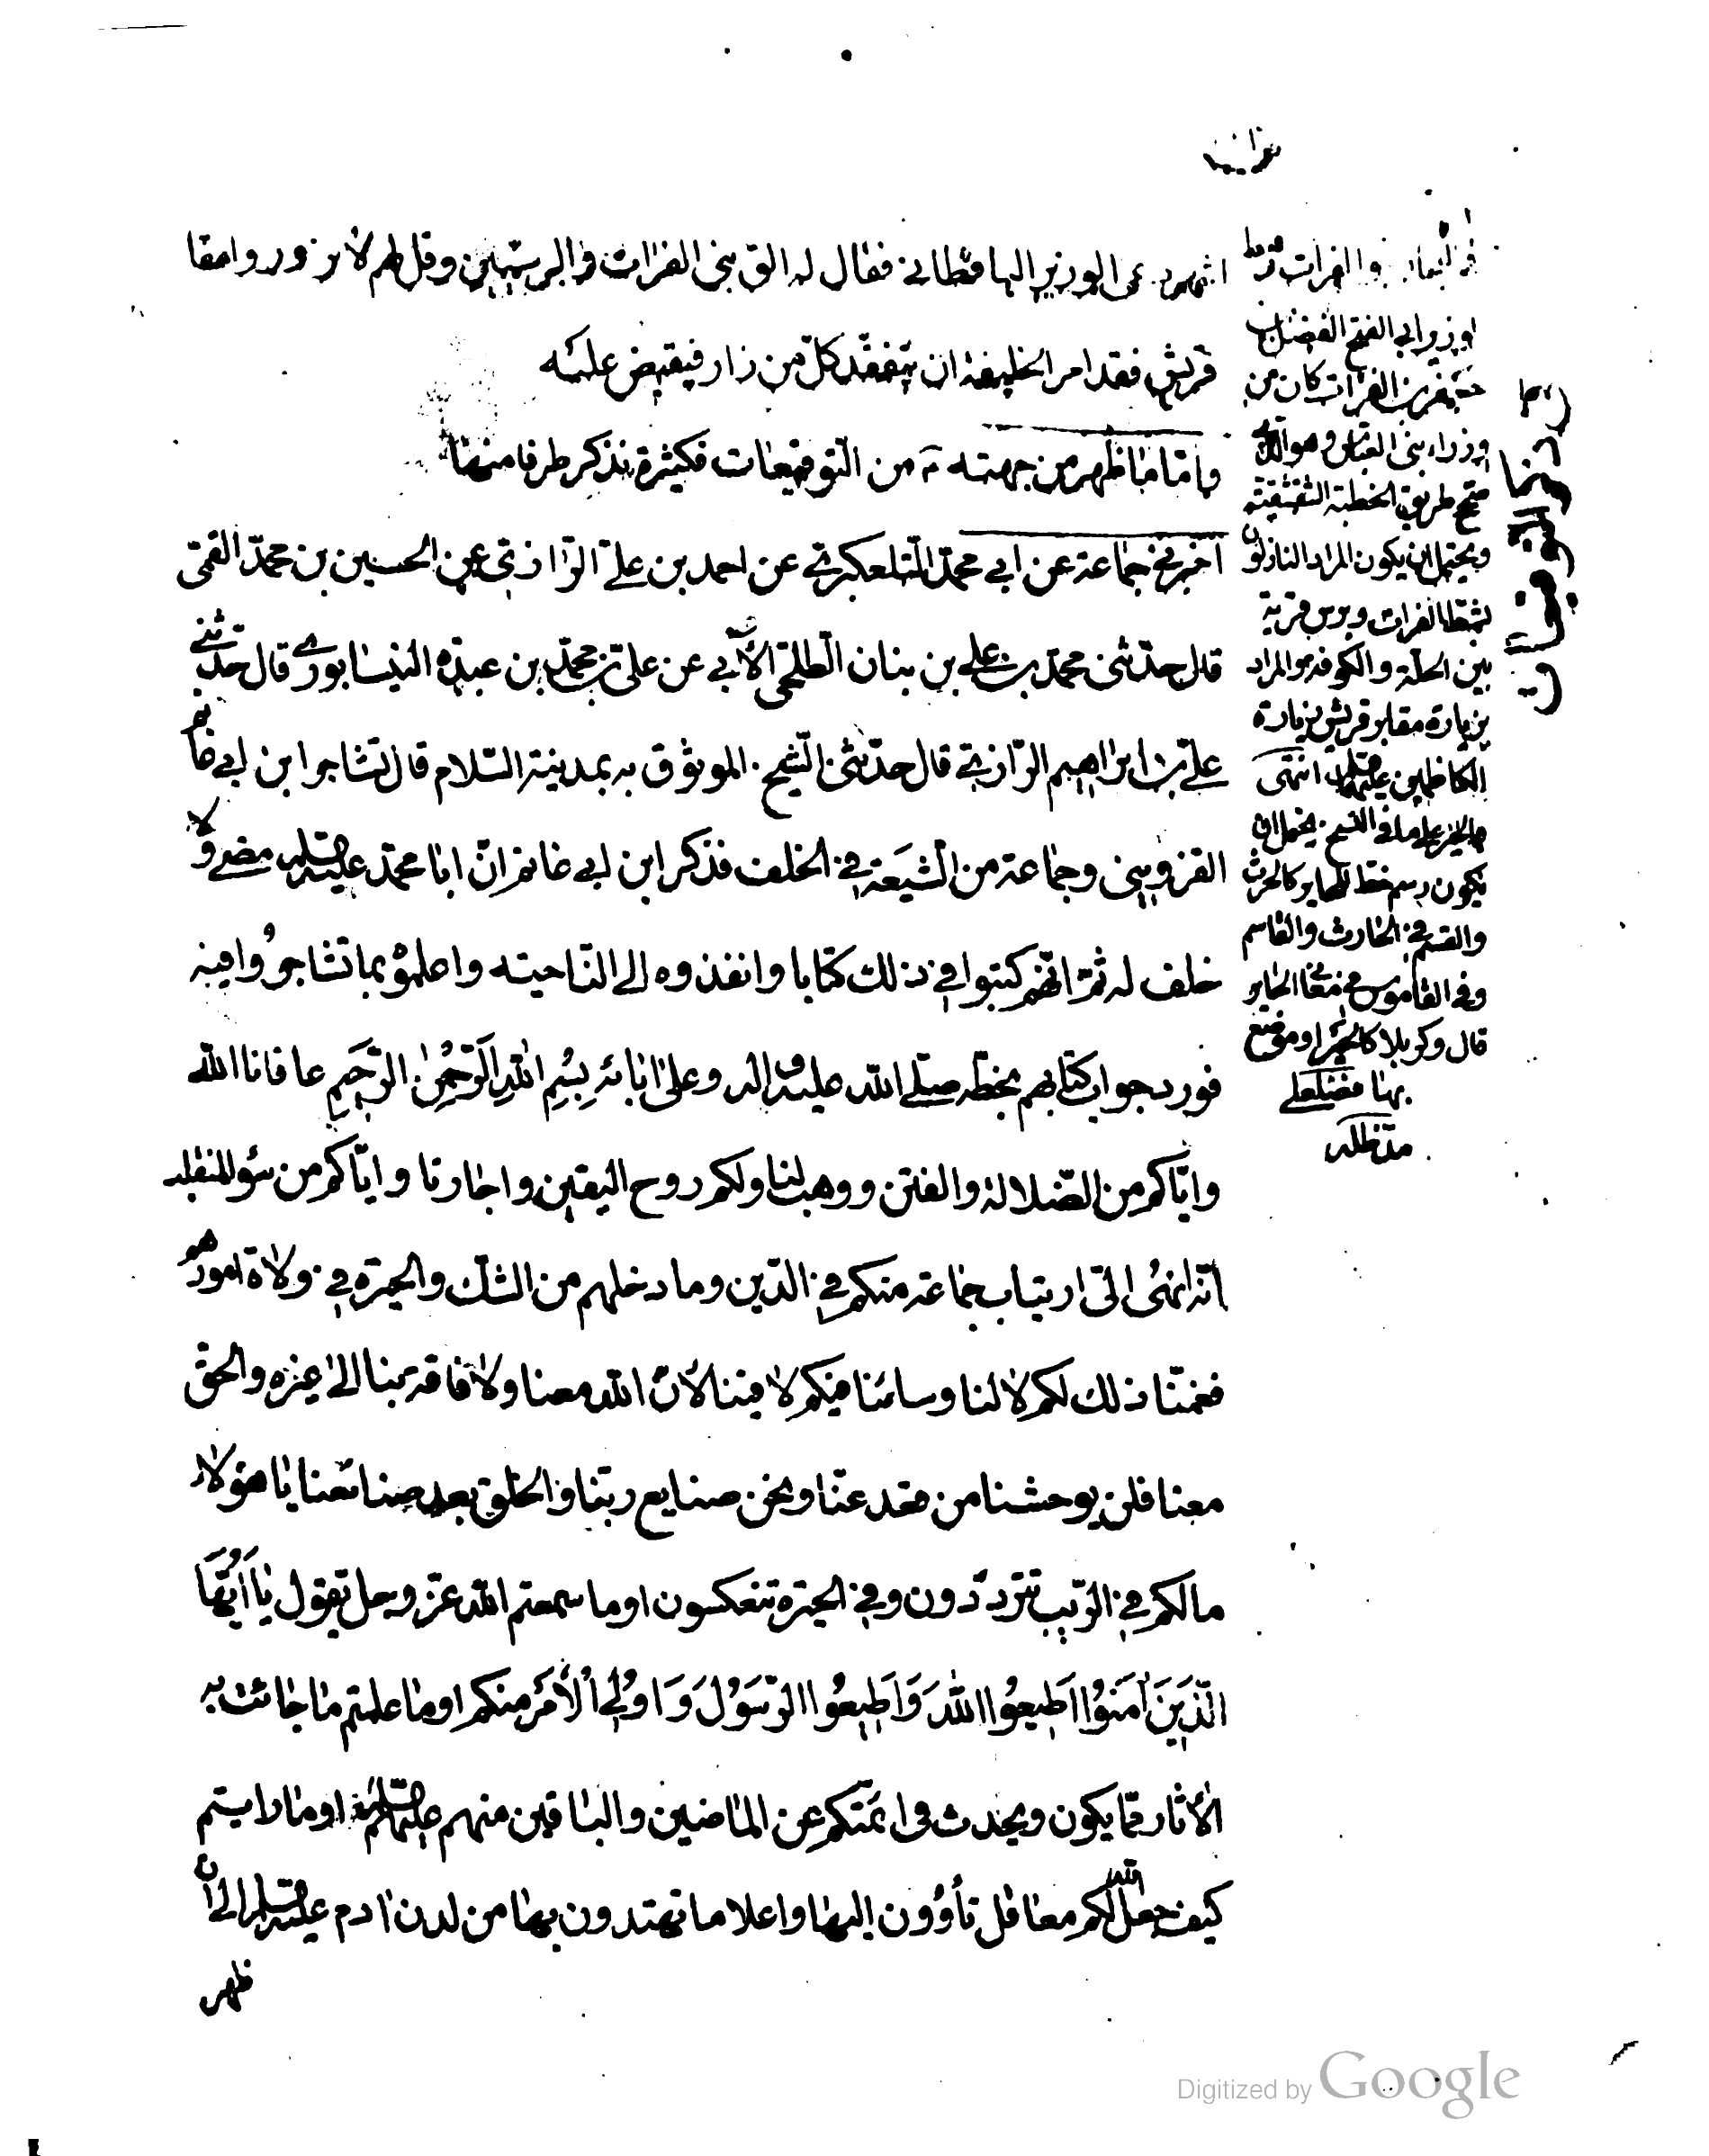 اشهر دعى الوزير الباقطاني فقال له الق بنى الفرات والبرسيين وقل لهم لا يزوروا مقابر
قريش فقد امر الخليفة ان يتفقد كل من زار فيقبض عليه
واما ما ظهر من جهته ع من التوقيعات فكثيرة نذكر طرفا منها
اخبرني جماعة عن ابي محمد التلعكبري عن احمد بن علي الرازي عن الحسين بن محمد القمى
قال حدثنى محمد بن علي بن بنان الطلحى الآبي عن علي بن محمد بن عبده النيسابوري قال حدثني
علي بن ابراهيم الرازي قال حدثنى الشيخ الموثوق به بمدينة السلام قال تشاجر ابن ابي غانم
القزوينى وجماعة من الشيعة في الخلف فذكر ابن ابي غانم ان ابا محمد عليه السلم مضى ولا
خلف له ثم انهم كتبوا في ذلك كتابا وانفذوه الى الناحية واعلموه بما تشاجروا فيه
فورد جواب كتابهم بخطه صلى الله عليه واله وعلى ابائه بسم الله الرحمن الرحيم عافانا الله
واياكم من الضلالة والفتن ووهب لنا ولكم روح اليقين واجارنا واياكم من سؤ المنقلب
انه انهى الي ارتياب جماعة منكم في الدين وما دخلهم من الشك والحيرة في ولاة امورهم
فغمنا ذلك لكم لا لنا وساءنا فيكم لا فينا لان الله معنا ولا فاقة بنا الى غيره والحق
معنا فلن يوحشنا من قعد عنا ونحن صنايع ربنا والخلق بعد صنائعنا يا هؤلاء
ما لكم في الريب تترددون وفي الحيرة تنعكسون اوما سمعتم الله عز وجل يقول يَا اَيُّهَا
الَّذِينَ اٰمَنُوا اَطِيعُوا اللّٰهَ وَاَطِيعُوا الرَّسُولَ وَاُولِي الْأَمْرِ منكم اوما علمتم ما جائت به
الاثار مما يكون ويحدث في ائمتكم عن الماضين والباقين منهم عليهم السلم اوما رايتم
كيف جعل الله لكم معاقل تأوون اليها واعلاما تهتدون بها من لدن ادم عليه السلم الى ان
ظهر
والفرات رهط
الوزير ابي الفتح الفضل بن
جعفر بن الفرات كان من
وزراء بنى العباس وهو الذي
صحح طريق الخطبة الشقشقية
ويحتمل ان يكون المراد النازلون
بشط الفرات وبرس قرية
بين الحلة والكوفة والمراد
بزيارة مقابر قريش زيارة
الكاظمين عليهما السلم انتهى
والحير على ما في النسخ يحتمل ان
يكون رسم خط الحاير كالحرث
والقسم في الحارث والقاسم
وفي القاموس في معنى الحاير
قال وكربلا كالحير او موضع
بها فضلعلى
مد ظله